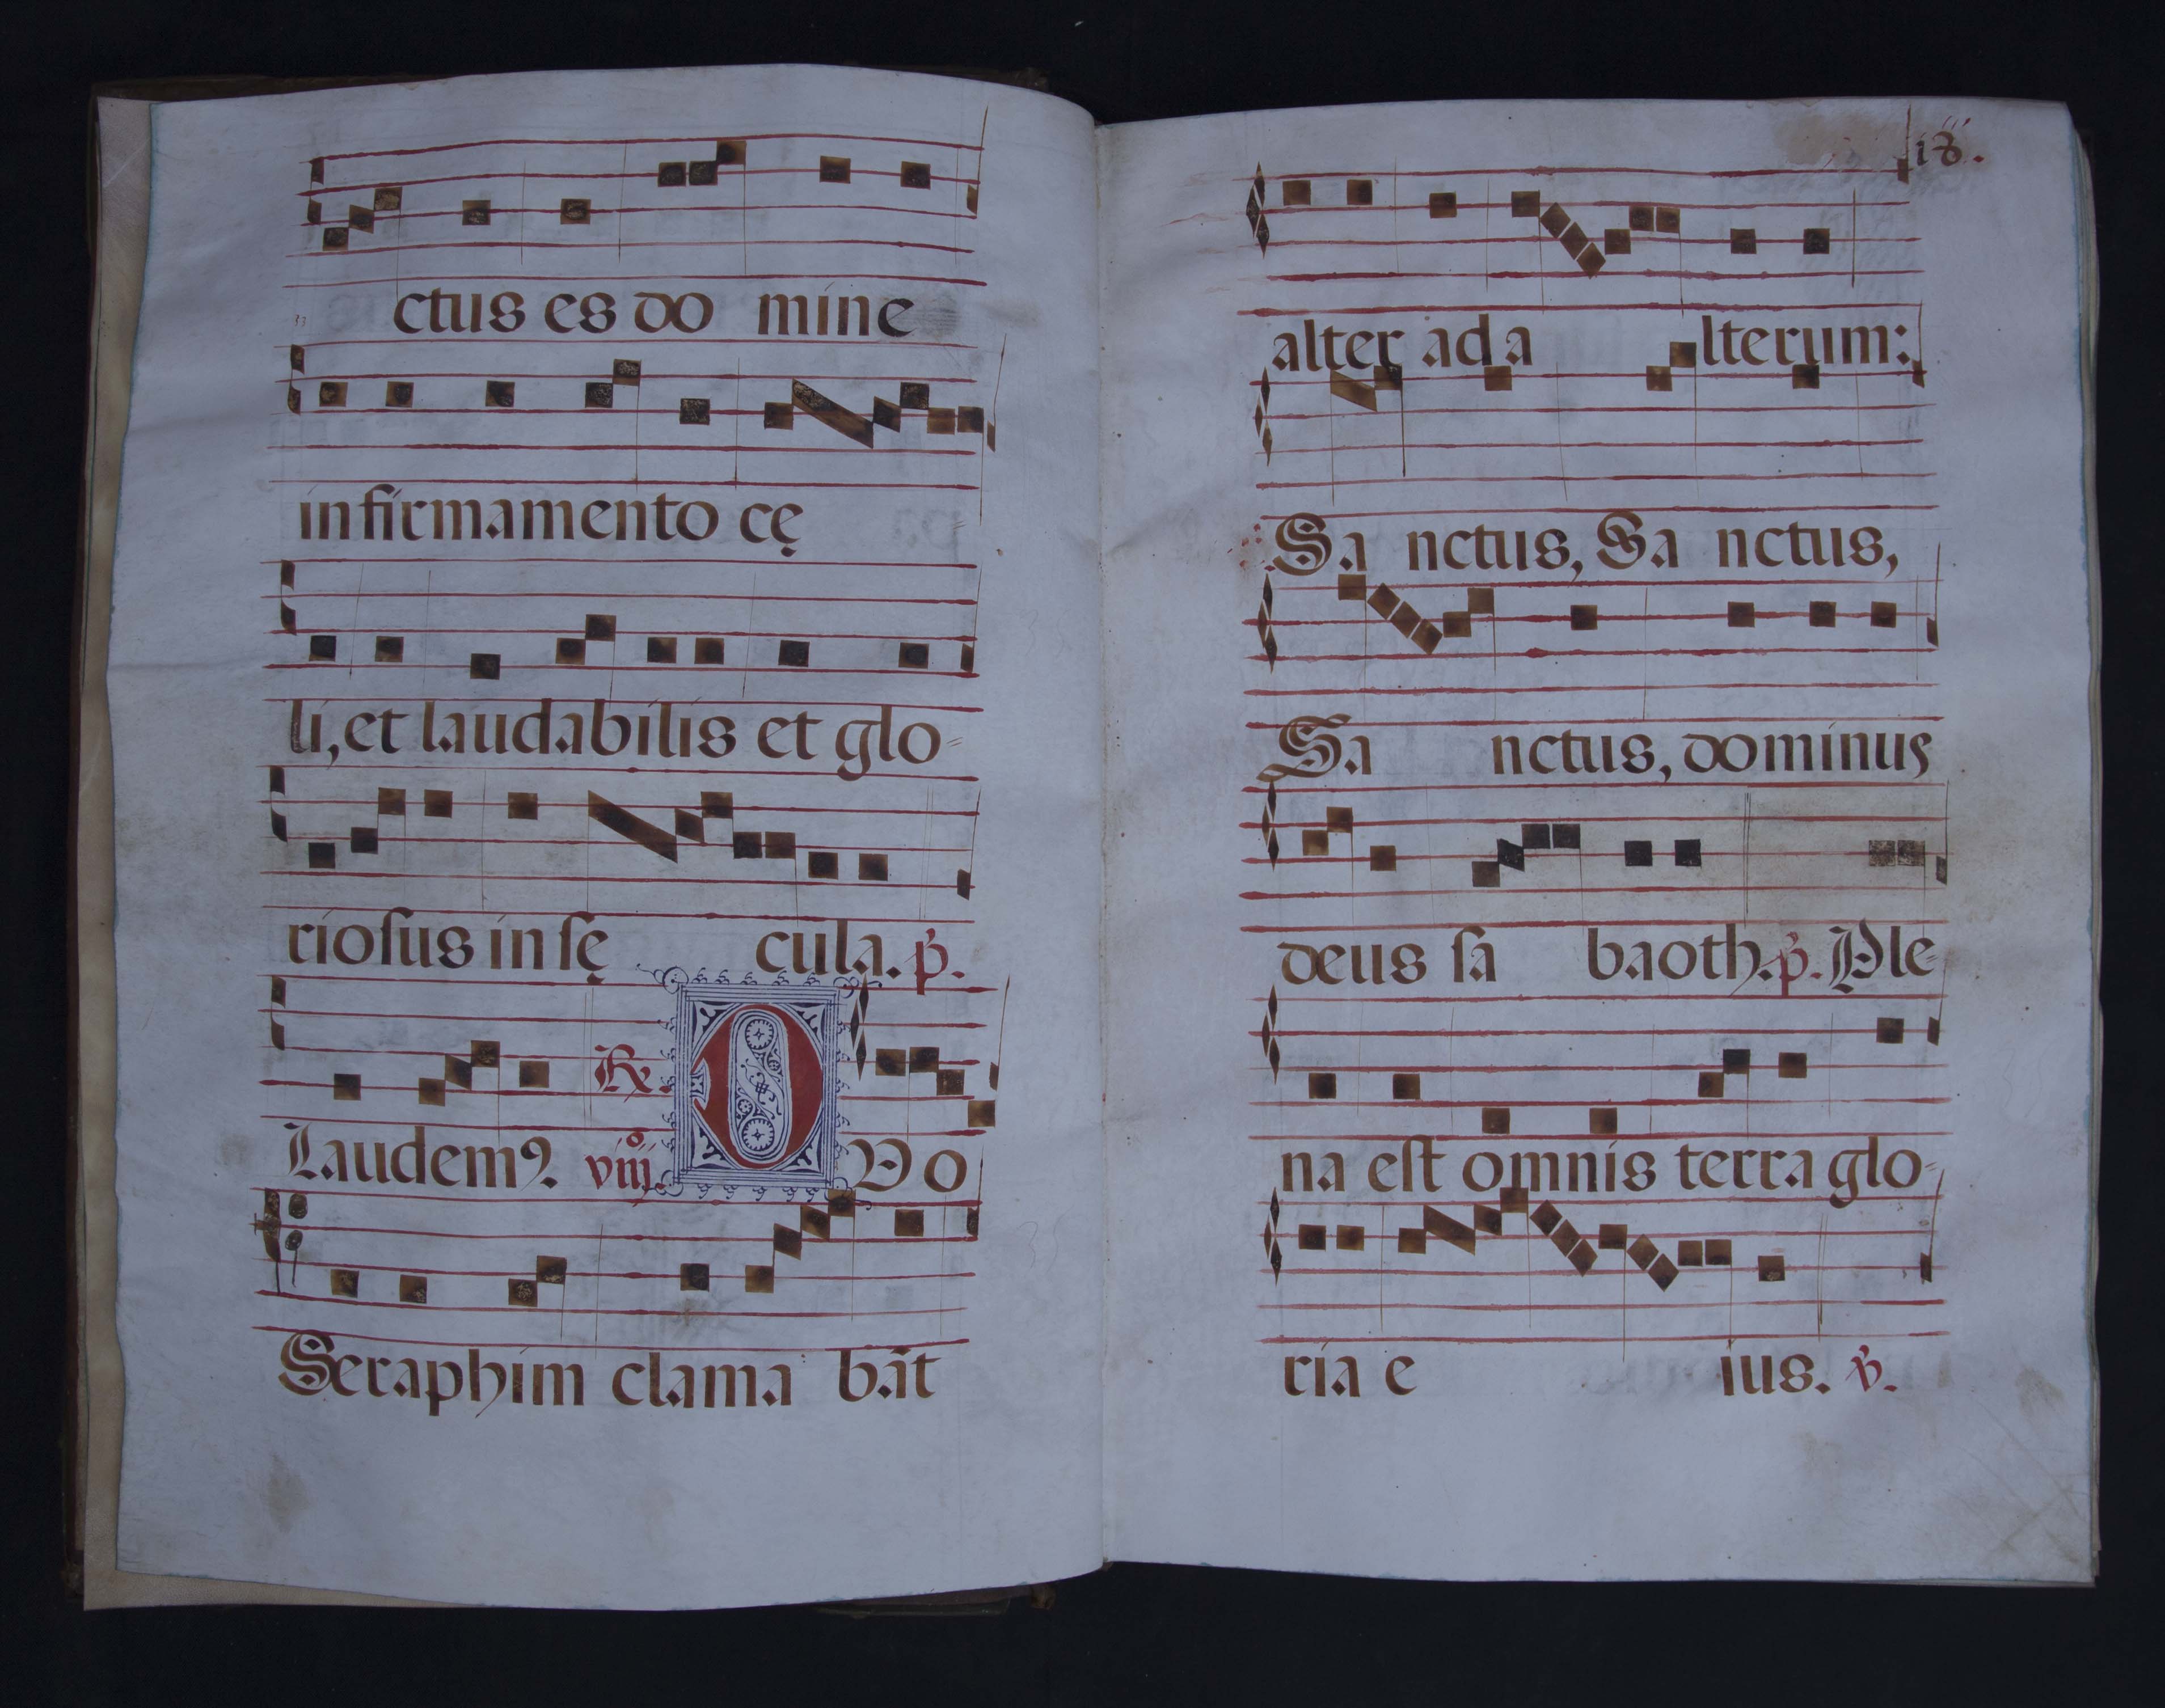 ctus es do mine
in firmamento cę
li, et laudabilis et glo=
riosus in sę cula. p̄.
Laudemꝰ. viijº. ℟. D Do
Seraphim clama bāt
18.
alter ad a lterum:
Sa nctus, Sa nctus,
Sa nctus, dominus
deus sa baoth. p̄. Ple=
na est omnis terra glo=
ria e ius. ℣.